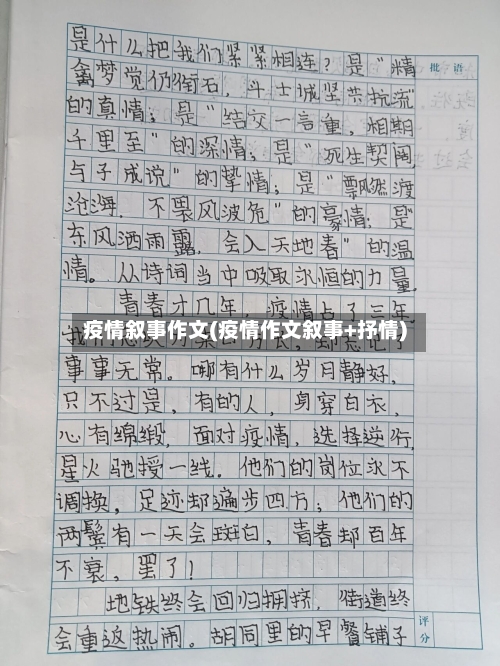 是什么把我们紧紧相连？是“精
批 语
禽梦觉仍衔石，斗士诚坚共抗流”
的真情；是“结交一言重，相期
千里至”的深情；是“死生契阔，
与子成说”的挚情；是“飘然渡
沧海，不畏风波危”的豪情；是“
东风洒雨露，会入天地春”的温
情。从诗词当中吸取永恒的力量。
青春才几年，疫情占了三年，
疫情叙事作文(疫情作文叙事+抒情)
事事无常。哪有什么岁月静好，
只不过是，有的人，身穿白衣，
心有绵缎，面对疫情，选择逆行，
星火驰援一线。他们的岗位永不
调换，足迹却遍步四方；他们的
两鬓有一天会斑白，青春却百年
不衰，罢了！
地铁终会回归拥挤，街道终
会重返热闹。胡同里的早餐铺子
评
分